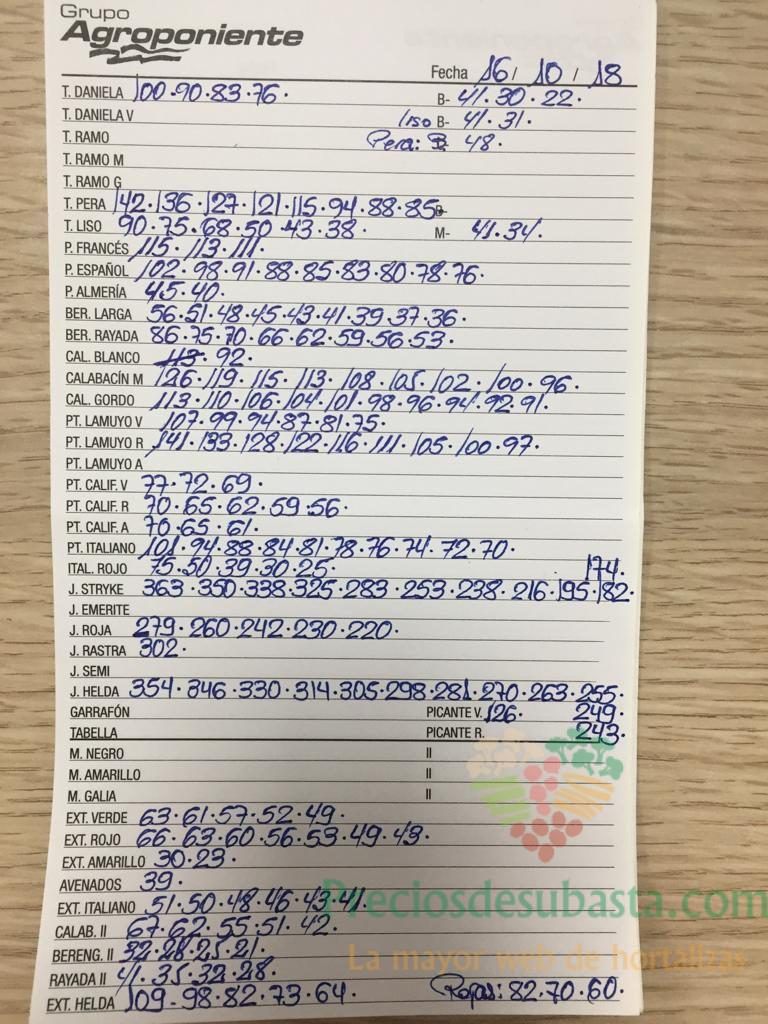 Grupo
Agroponiente
Fecha 16 / 10 / 18
T. DANIELA 100·90·83·76· B- 41·30·22·
T. DANIELA V liso B- 41·31·
T. RAMO Pera: B- 48·
T. RAMO M
T. RAMO G
T. PERA 142·136·127·121·115·94·88·85 B-
T. LISO 90·75·68·50·43·38· M- 41·34·
P. FRANCÉS 115·113·111·
P. ESPAÑOL 102·98·91·88·85·83·80·78·76·
P. ALMERÍA 45·40·
BER. LARGA 56·51·48·45·43·41·39·37·36·
BER. RAYADA 86·75·70·66·62·59·56·53·
CAL. BLANCO 113·92·
CALABACÍN M 126·119·115·113·108·105·102·100·96·
CAL. GORDO 113·110·106·104·101·98·96·94·92·91·
PT. LAMUYO V 107·99·94·87·81·75·
PT. LAMUYO R 141·133·128·122·116·111·105·100·97·
PT. LAMUYO A
PT. CALIF. V 77·72·69·
PT. CALIF. R 70·65·62·59·56·
PT. CALIF. A 70·65·61·
PT. ITALIANO 101·94·88·84·81·78·76·74·72·70·
ITAL. ROJO 75·50·39·30·25· 174·
J. STRYKE 363·350·338·325·283·253·238·216·195·182·
J. EMERITE
J. ROJA 279·260·242·230·220·
J. RASTRA 302·
J. SEMI
J. HELDA 354·346·330·314·305·298·281·270·263·255·
GARRAFÓN PICANTE V. 126· 249·
TABELLA PICANTE R. 243·
M. NEGRO II
M. AMARILLO II
M. GALIA II
EXT. VERDE 63·61·57·52·49·
EXT. ROJO 66·63·60·56·53·49·43·
EXT. AMARILLO 30·23·
AVENADOS 39·
EXT. ITALIANO 51·50·48·46·43·41·
Preciosdesubasta.com
CALAB. II 67·62·55·51·42·
BERENG. II 32·28·25·21·
La mayor web de hortalizas
RAYADA II 41·35·32·28·
EXT. HELDA 109-98·82·73·64· Rojas: 82·70·60·